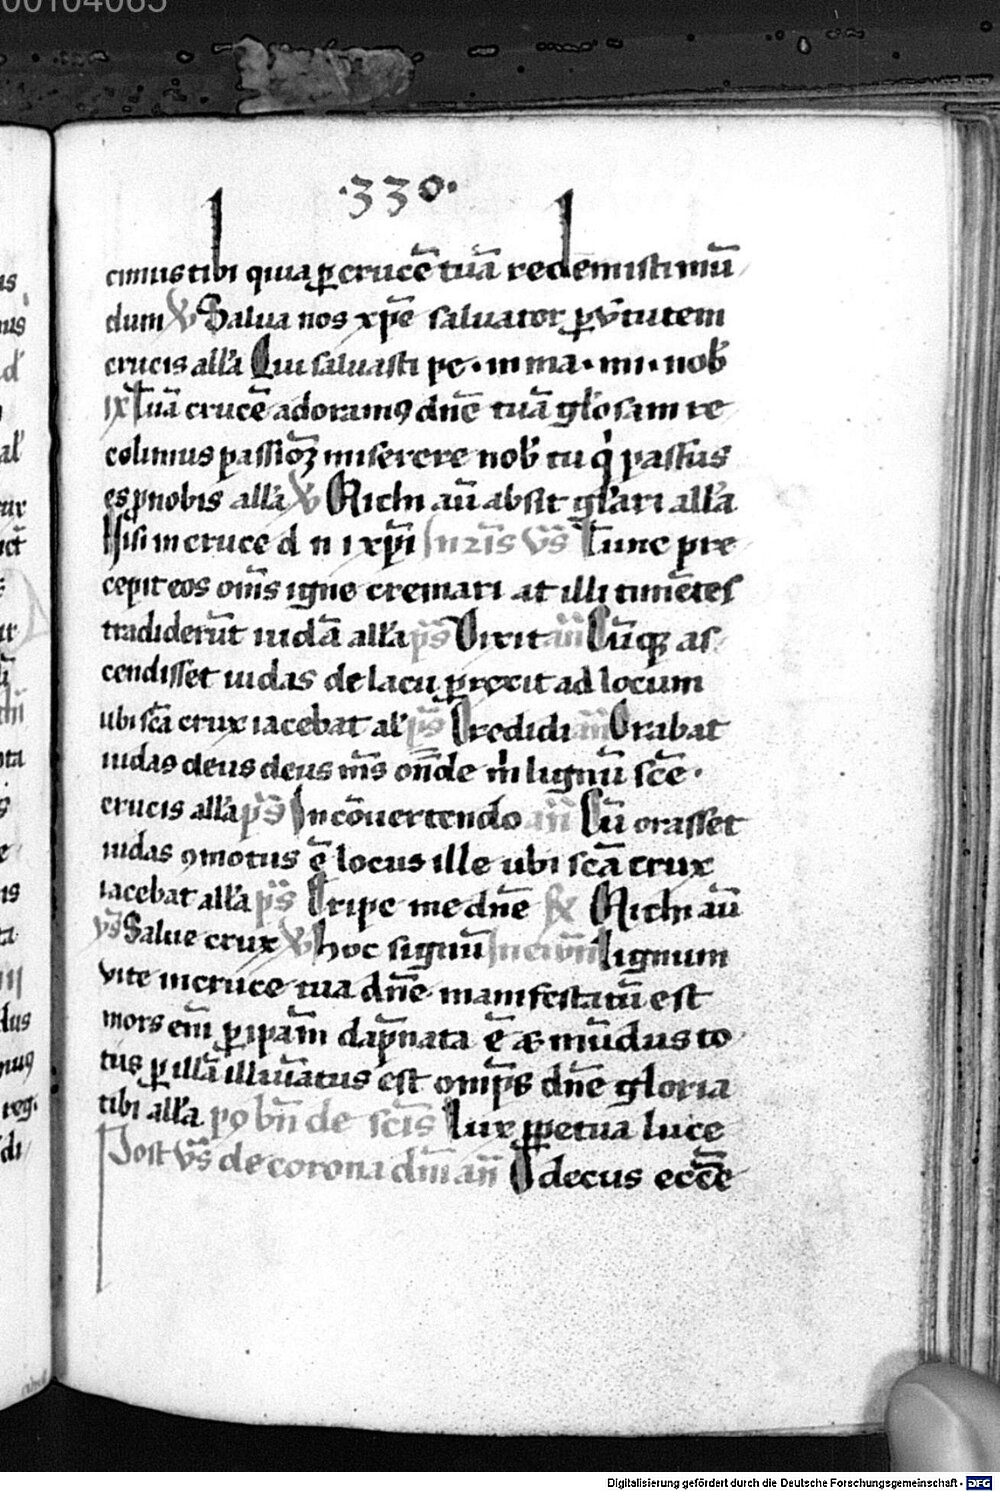 00104065
·330·
cimus tibi quia ꝑ crucē tuā redemisti mū
dum ℣ Salua nos xp̄e saluator ꝑ v̄tutem
crucis all'a Qui saluasti pe · in ma · mi · nob'
Tuā crucē adoramꝯ dn̄e tuā gl'osam re
colimus passiōꝫ miserere nob' tu q' passus
es ꝓ nobis all'a ℣ Michi aū absit gl'ari all'a
Nisi in cruce d n i xp̄i Tunc pre
cepit eos om̄s igne cremari at illi timētes
tradiderūt iudā all'a p̄s Dixit añ Cūqꝫ as
cendisset iudas de lacu ꝑrexit ad locum
ubi sc̄a crux iacebat al' p̄s Credidi añ Orabat
iudas deus deus m̄s on̄de m' lignū sc̄e ·
crucis all'a p̄s In cōuertendo añ Cū orasset
iudas ꝯmotus ē locus ille ubi sc̄a crux
iacebat all'a p̄s Eripe me dn̄e ℟ Michi aū
Salue crux ℣ hoc signū Lignum
vite in cruce tua dn̄e manifestatū est
mors em̄ ꝑ ipām dāpnata ē et mūdus to
tus ꝑ illā illūatus est omp̄s dn̄e gloria
tibi all'a bn̄ de sc̄is Lux ꝑpetua luce
Post de corona dn̄i añ O decus ecc̄e
Digitalisierung gefördert durch die Deutsche Forschungsgemeinschaft - DFG